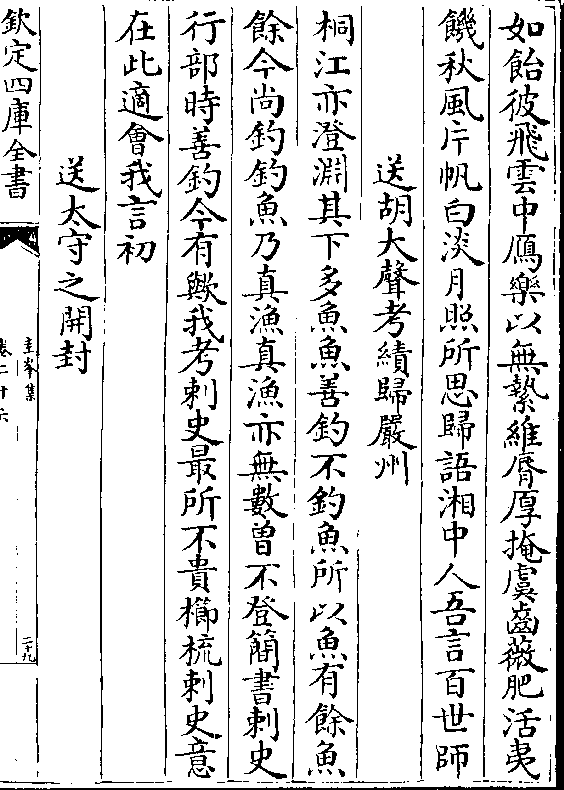 如飴彼飛雲中鴈樂以無縶維脣厚掩虞齒薇肥活夷
饑秋風片帆白淡月照所思歸語湘中人吾言百世師
送胡大聲考績歸嚴州
桐江亦澄淵其下多魚魚善釣不釣魚所以魚有餘魚
餘今尚釣釣魚乃真漁真漁亦無數曽不登簡書刺史
行部時善釣今有歟我考刺史最所不貴櫛梳刺史意
在此適會我言初
送太守之開封
欽定四庫全書
圭峯集
卷二十六
二十九